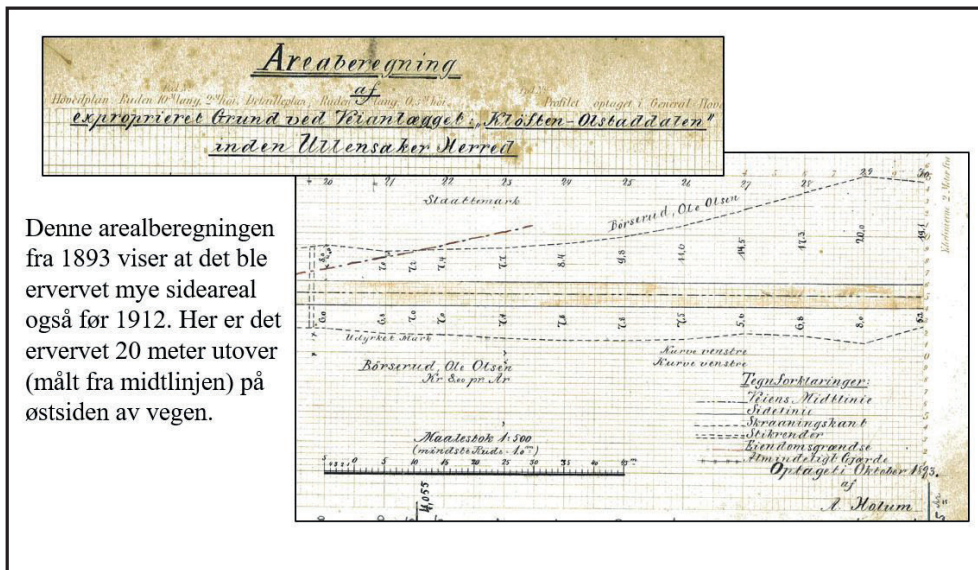 Areaberegning
af
Hovedplan Ruden 10 m lang, 2 m høi. Detailleplan, Ruden lang, 0,5 m høi. Profilet optaget i General
exproprieret Grund ved Veianlægget: „Kløften-Olstaddalen"
inden Ullensaker Herred
Denne arealberegningen
fra 1893 viser at det ble
ervervet mye sideareal
også før 1912. Her er det
ervervet 20 meter utover
(målt fra midtlinjen) på
østsiden av vegen.
20 21 22 23 24 25 26 27 28 29 30
Slaattemark
Börserud, Ole Olsen
7,0 7,2 7,4 7,7 8,4 9,8 11,0 14,5 17,3 20,0 19,1
6,0 6,8 7,0 7,0 7,8 7,8 7,8 7,5 5,6 6,8 8,0 5,3
Udyrket Mark
Börserud, Ole Olsen
Kr 8,00 pr. Ar
Kurve venstre
Kurve venstre
Tegnforklaringer:
Veiens Midtlinie
Sidelinie
Skraaningskant
Stikrender
Eiendomsgrændse
Almindeligt Gjærde
Maalestok 1:500
(mindste Rude = 1,0 m)
5 0 5 10 15 20 25 30 35 40 45 m
Optaget i Oktober 1893.
af
A. Holum
4,055